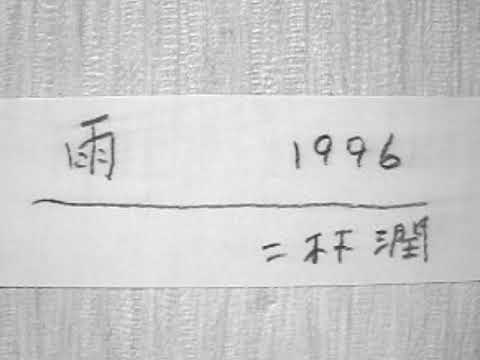 雨 1996
二杯潤